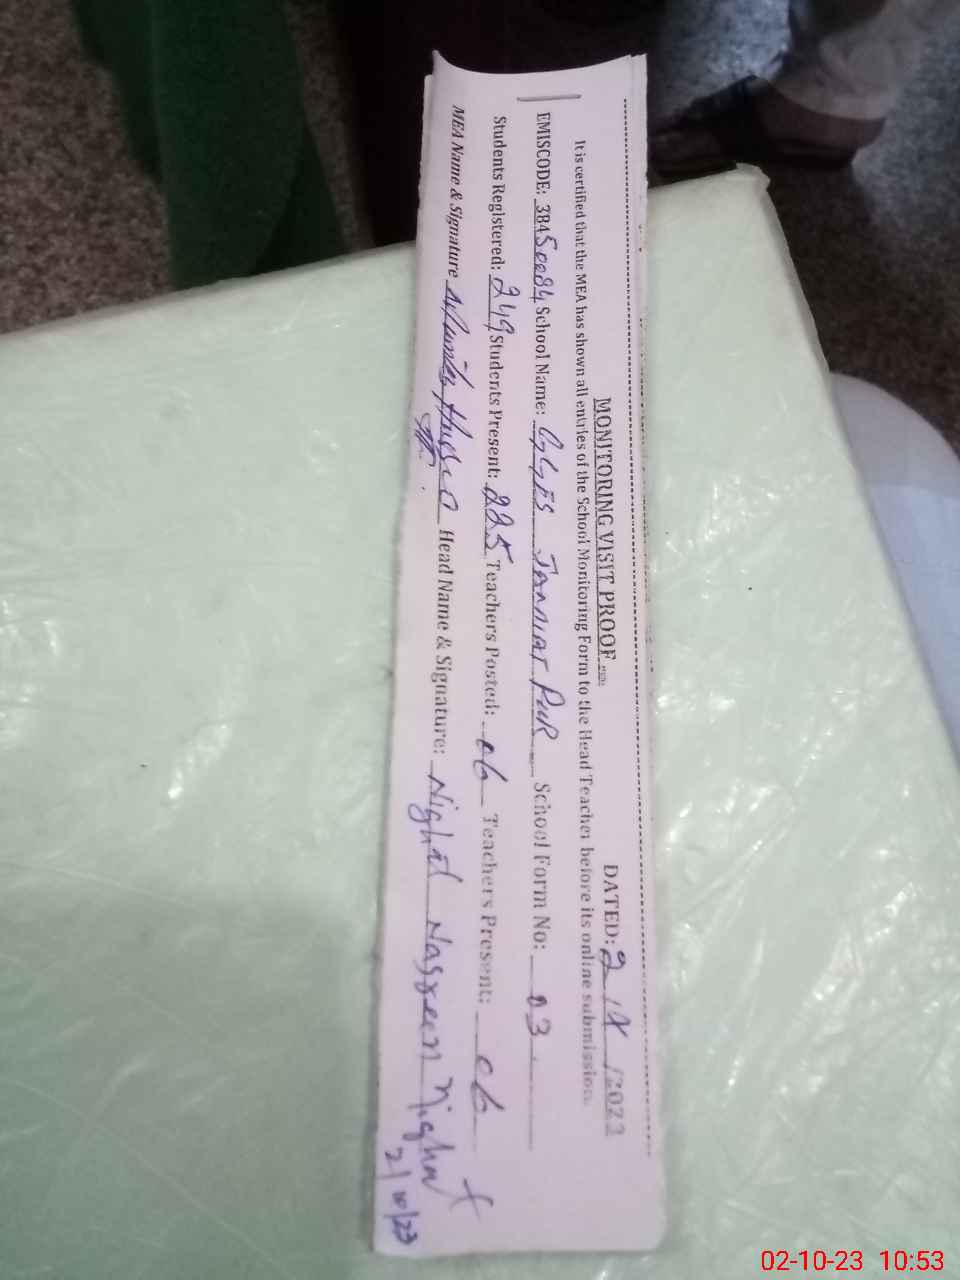 MONITORING VISIT PROOF DATED: 2 / X /2023
It is certified that the MEA has shown all entries of the School Monitoring Form to the Head Teacher before its online submission.
EMISCODE: 38450084 School Name: GGES Jannat Pur School Form No: 03
Students Registered: 249 Students Present: 225 Teachers Posted: 06 Teachers Present: 06
MEA Name & Signature Head Name & Signature: Nighat Nasreen Nighat
2/10/23
02-10-23 10:53